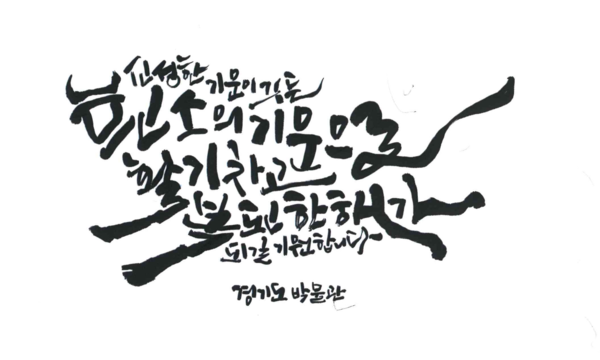 신성한 기운이
흰소의 기운으로
활기차고
복된 한해가
되길 기원합니다
경기도 박물관